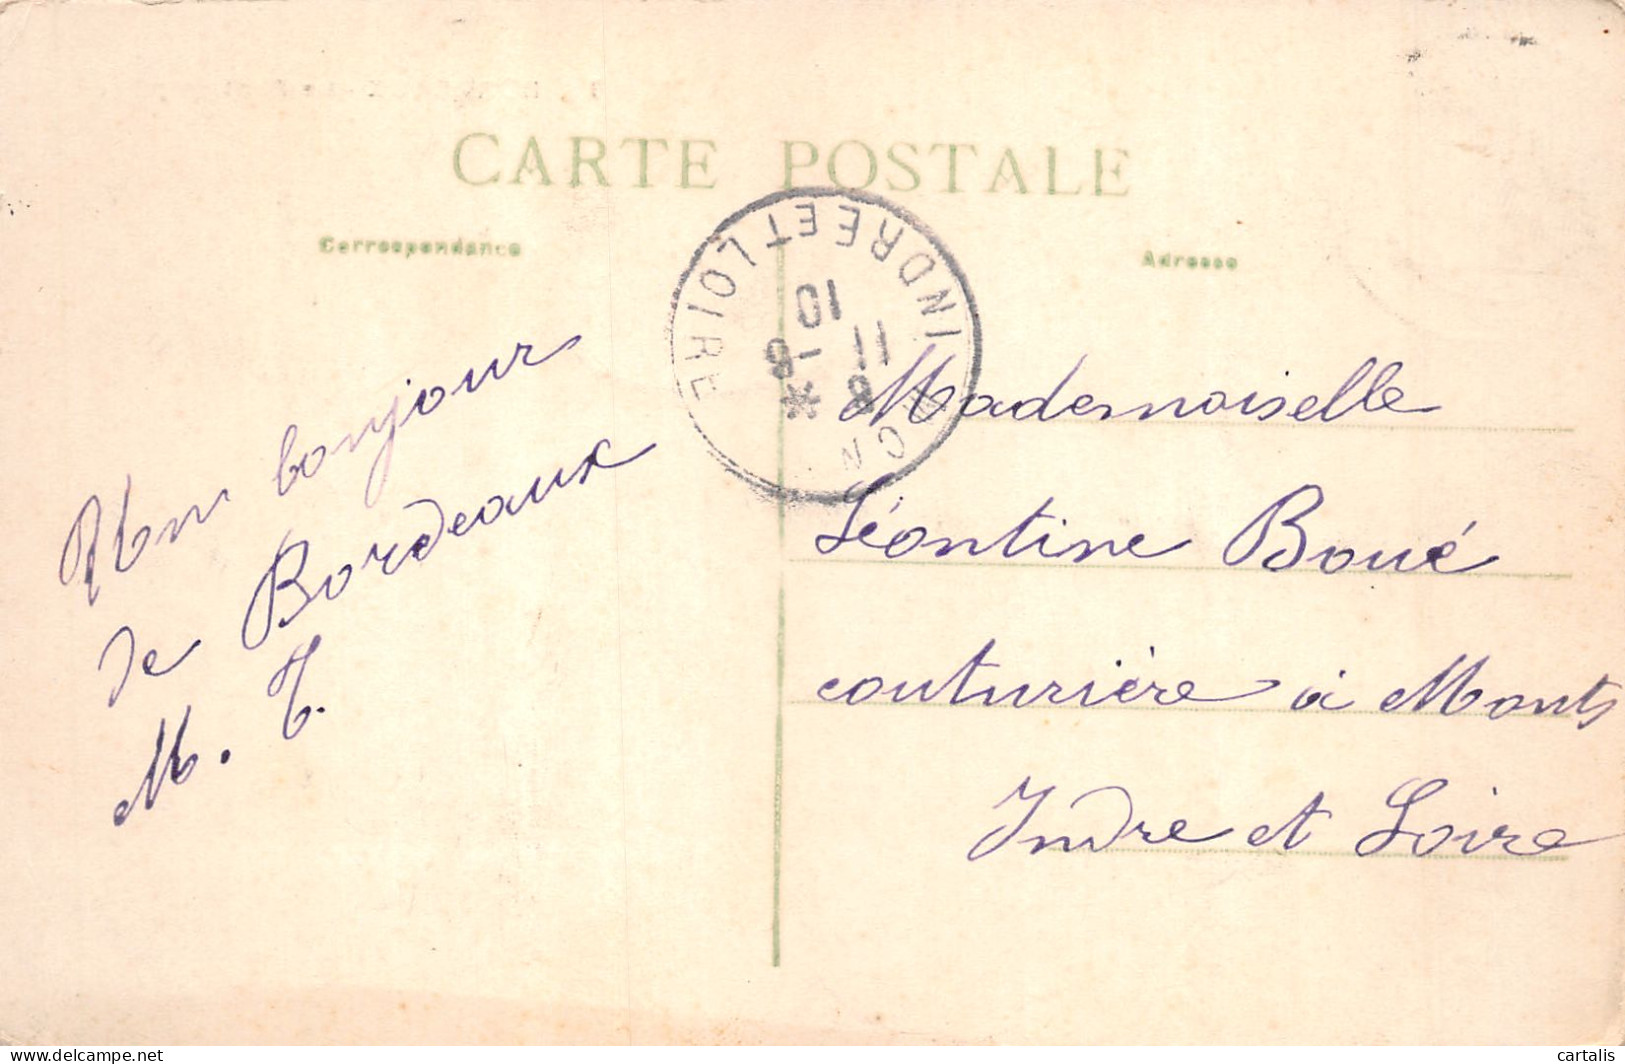 CARTE POSTALE
Correspondance
Adresse
INDRE ET LOIRE
10
11
8
Un bonjour
de Bordeaux
M. T.
Mademoiselle
Léontine Boué
couturière à Monts
Indre et Loire
delcampe.net
cartalis